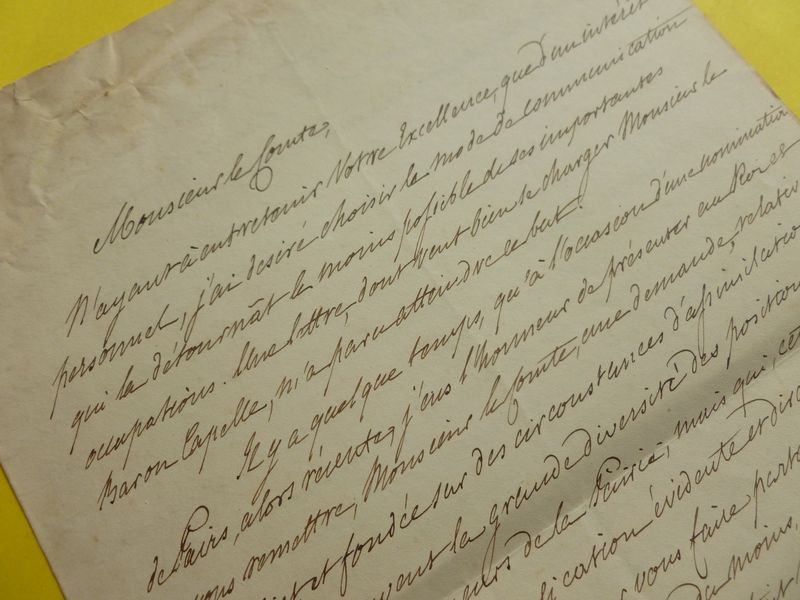 Monsieur le Comte,
N'ayant à entretenir Votre Excellence, que d'un intérêt
personnel, j'ai desiré choisir le mode de communication
qui la détournât le moins possible de ses importantes
occupations. Une lettre, dont veut bien se charger Monsieur le
Baron Capelle, m'a paru atteindre ce but.
Il y a quelque temps, qu'à l'occasion d'une nomination
de Pairs, alors récente, j'eus l'honneur de présenter au Roi et
vous remettre, Monsieur le Comte, une demande, relativ
et fondée sur des circonstances d'assimilation
la grande diversité des position
de la Pairie, mais qui, cet
évidente et dire
vous faire parte
du moins,